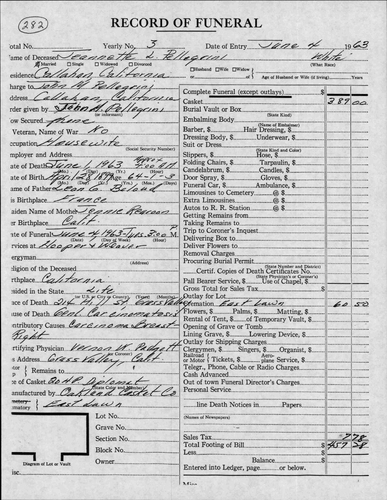 282
RECORD OF FUNERAL
otal No. Yearly No. 3 Date of Entry June 4 1963
ame of Deceased Jeannette L Pellegrini White
Married Single Widowed Divorced (What Race)
esidence Callahan, California Husband Wife Widow Age of Husband or Wife (if living) Years
harge to John M Pellegrini
ddress Callahan, California
rder given by John M. Pellegrini
ow Secured phone
Veteran, Name of War No
ccupation Housewife
(Social Security Number)
mployer and Address
ate of Death June 1, 1963
ate of Birth April 28 1899 64-1-3
ame of Father Leon G.
is Birthplace France
aiden Name of Mother Jennie
er Birthplace Calif.
ate of Funeral June 4 1963 3:00 P. M.
(Date) (Day of Week) (Hour)
rvices at Hooper & Weaver
ergyman
eligion of the Deceased
irthplace California
esided in the State Life
ace of Death
ause of Death Genl Carcinomatosis
ntributory Causes Carcinoma Breast
Right
ertifying Physician Vernon W.
is Address Grass Valley, Calif
Remains to
ze of Casket Diplomat
anufactured by Oakland Casket Co
East Lawn
Lot No.
Grave No.
Section No.
Block No.
Owner
Diagram of Lot or Vault
Complete Funeral (except outlays) $
Casket 389 00
Burial Vault or Box
(State Kind)
Embalming Body
Barber, $ Hair Dressing, $
Dressing Body, $ Underwear, $
Suit or Dress
(State Kind and Color)
Slippers, $ Hose, $
Folding Chairs, $ Tarpaulin, $
Candelabrum, $ Candles, $
Door Spray, $ Gloves, $
Funeral Car, $ Ambulance, $
Limousines to Cemetery @ $
Extra Limousines @ $
Autos to R. R. Station @ $
Getting Remains from
Taking Remains to
Trip to Coroner's Inquest
Delivering Box to
Deliver Flowers to
Removal Charges
Procuring Burial Permit
(State Number and District)
Certif. Copies of Death Certificates No.
(State Physician's or Coroner's)
Pall Bearer Service, $ Use of Chapel, $
Gross Total for Sales Tax $
Outlay for Lot
East Lawn 60 50
Flowers, $ Palms, $ Matting, $
Rental of Tent, $ of Temporary Vault, $
Opening of Grave or Tomb
Lining Grave, $ Lowering Device, $
Outlay for Shipping Charges
Clergymen, $ Singers, $ Organist, $
Railroad Motor Tickets, $ Aeroplane Service, $
Telegr., Phone, Cable or Radio Charges
Cash Advanced
Out of town Funeral Director's Charges
Personal Service
line Death Notices in Papers
(Names of Newspapers)
Sales Tax 7 78
Total Footing of Bill $ 457 28
Less
Balance $
Entered into Ledger, page or below.